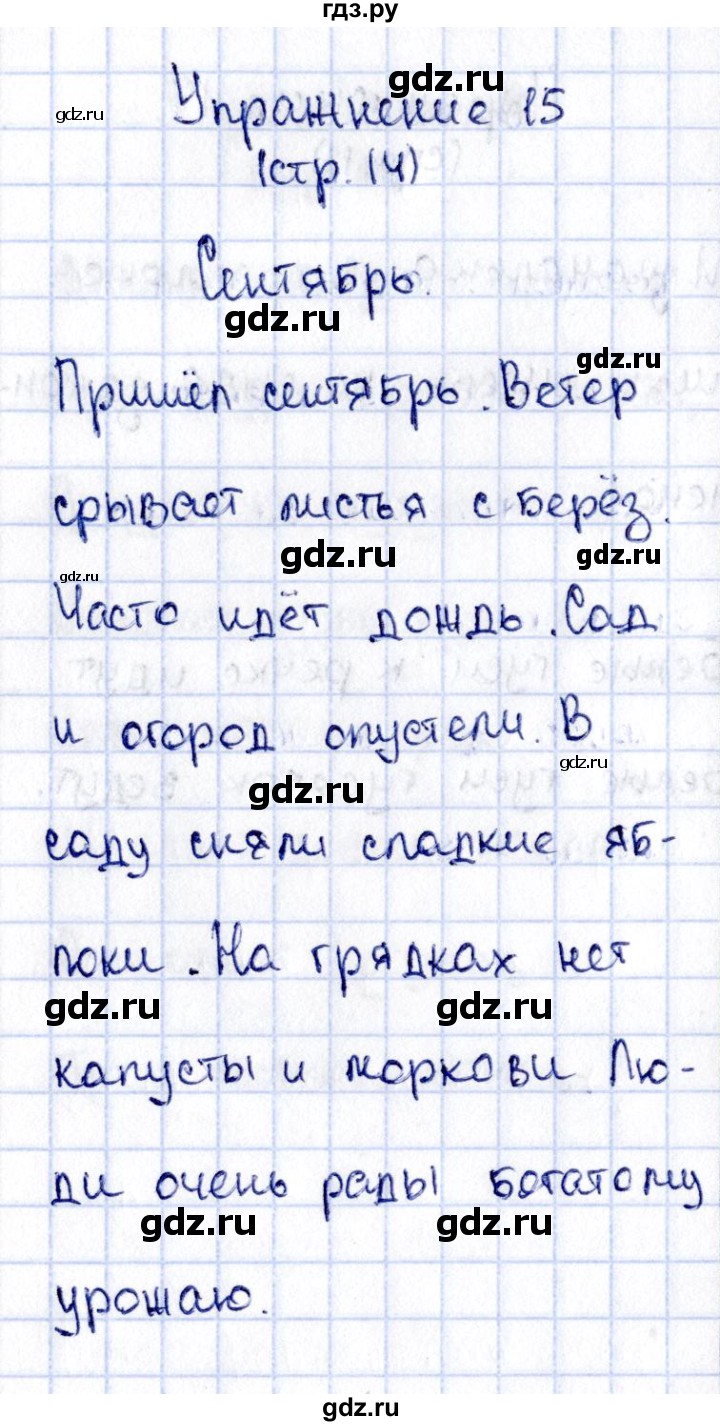 гдз.ру
gdz.ru
gdz.ru
Упражнение 15
(стр. 14)
Сентябрь.
gdz.ru
gdz.ru
Пришёл сентябрь. Ветер
срывает листья с берёз.
gdz.ru
gdz.ru
gdz.ru
Часто идёт дождь. Сад
и огород опустели. В
gdz.ru
gdz.ru
саду сняли сладкие яб-
локи. На грядках нет
gdz.ru
gdz.ru
капусты и моркови. Лю-
ди очень рады богатому
gdz.ru
gdz.ru
урожаю.
gdz.ru